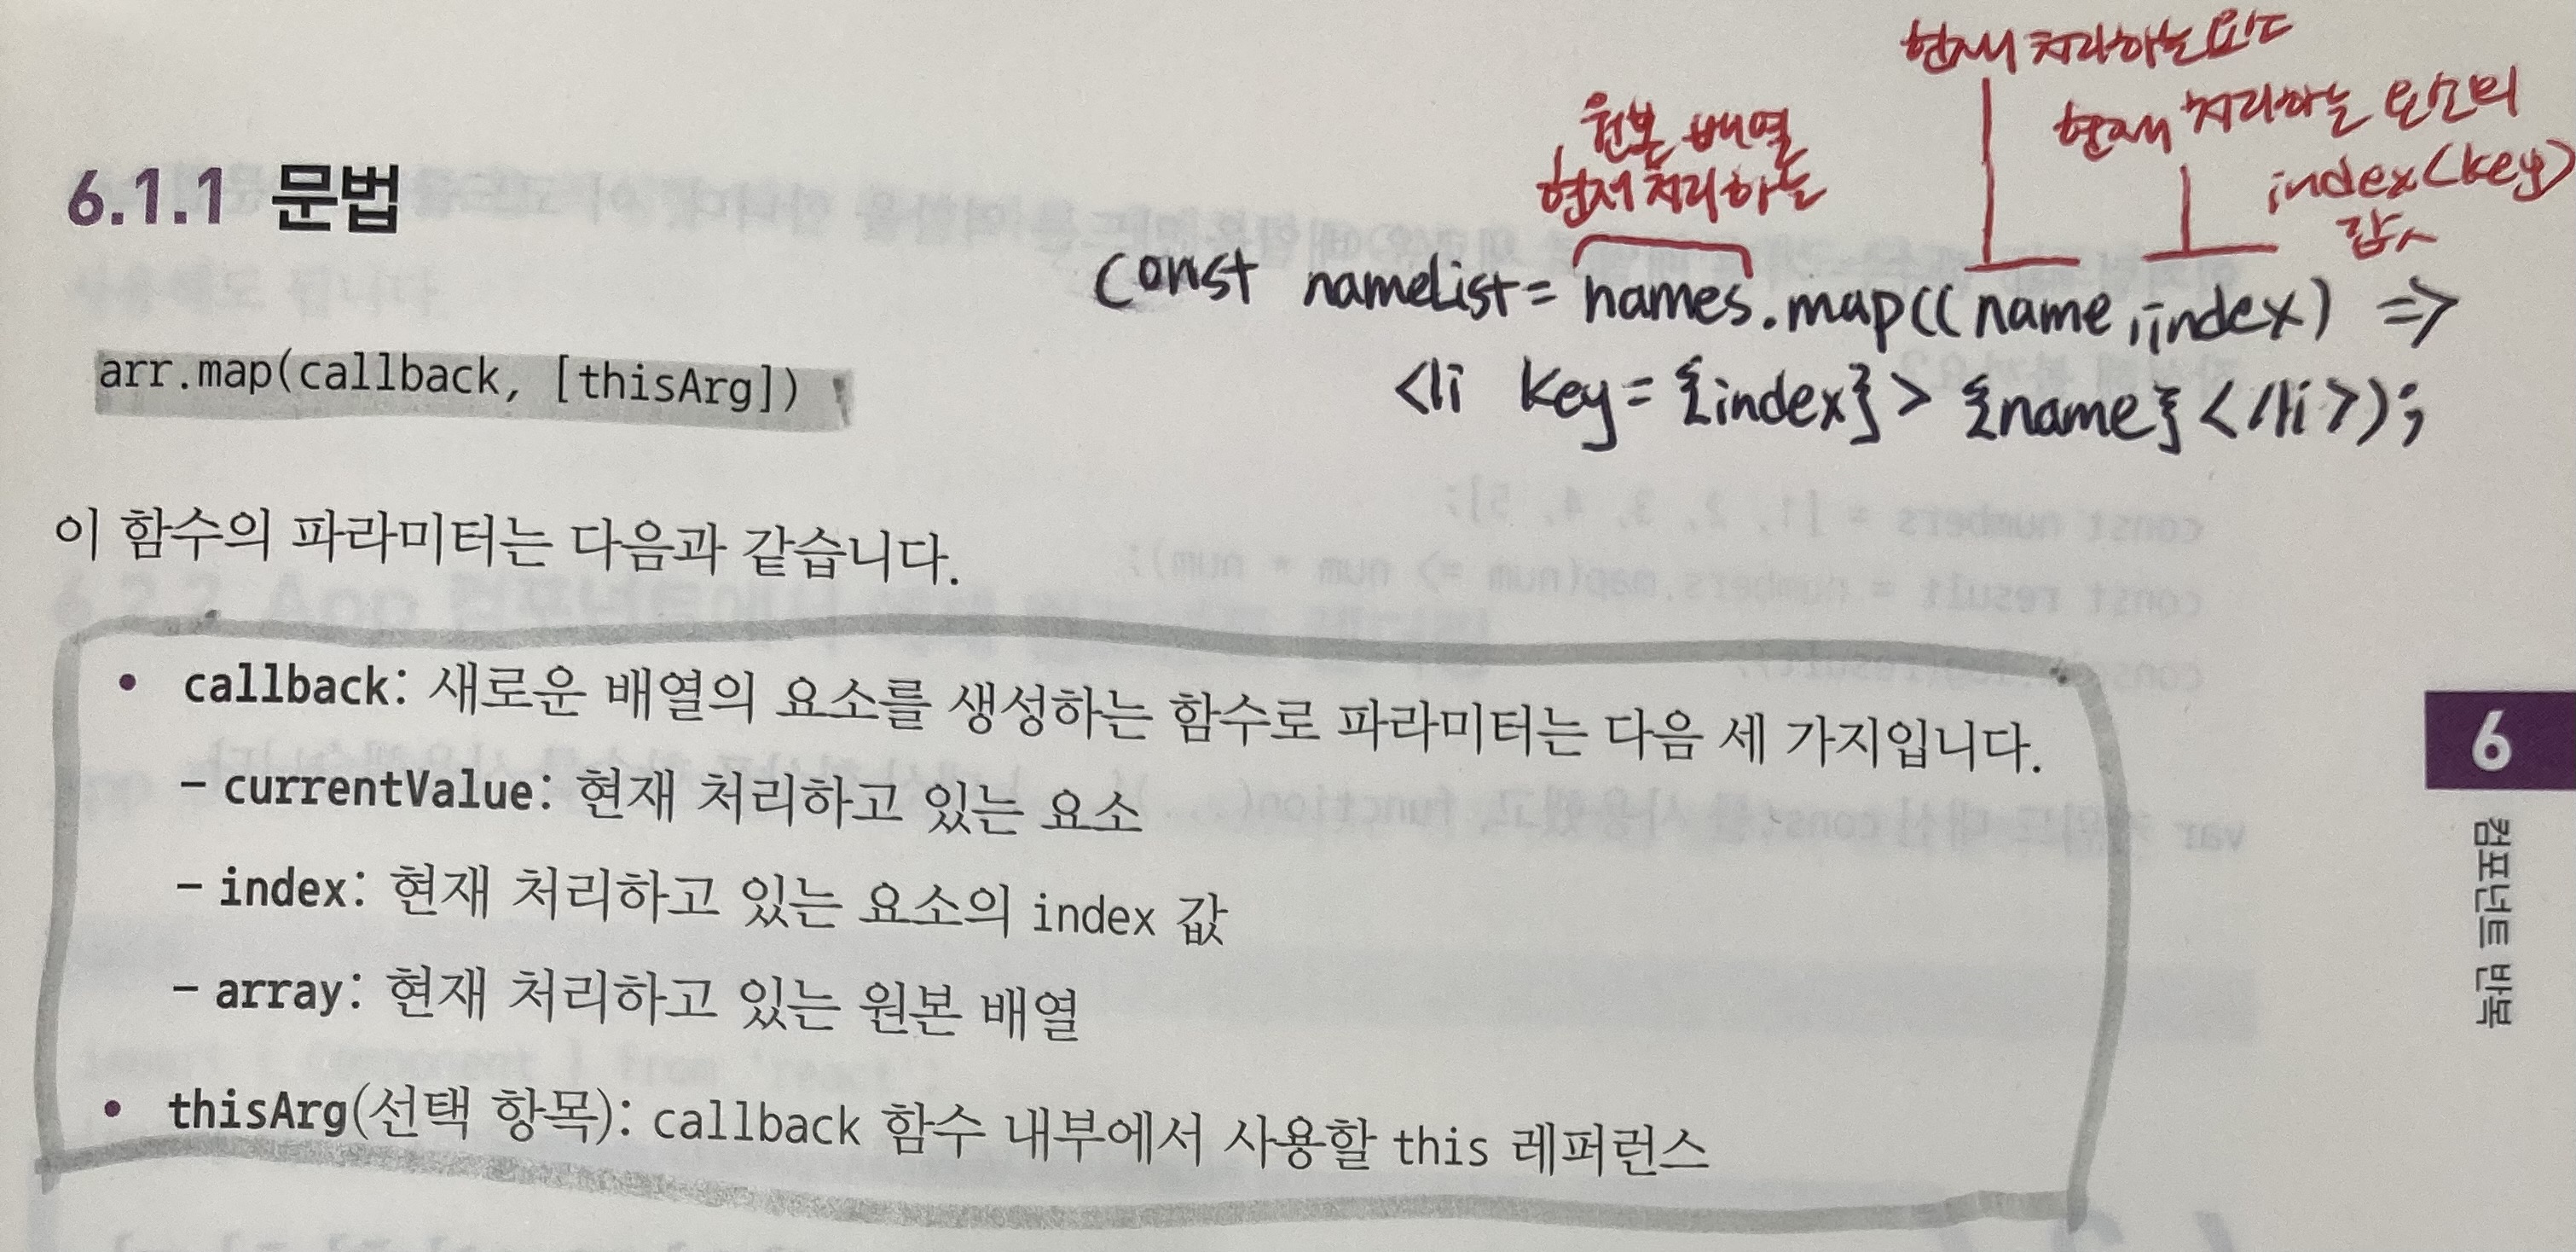 현재 처리하는 요소
현재 처리하는 요소의
index(key)
값
원본 배열
현재 처리하는
6.1.1 문법
const nameList = names.map((name, index) =>
<li key={index}>{name}</li>);
arr.map(callback, [thisArg])
이 함수의 파라미터는 다음과 같습니다.
• callback: 새로운 배열의 요소를 생성하는 함수로 파라미터는 다음 세 가지입니다.
– currentValue: 현재 처리하고 있는 요소
– index: 현재 처리하고 있는 요소의 index 값
– array: 현재 처리하고 있는 원본 배열
• thisArg(선택 항목): callback 함수 내부에서 사용할 this 레퍼런스
6
컴포넌트 반복